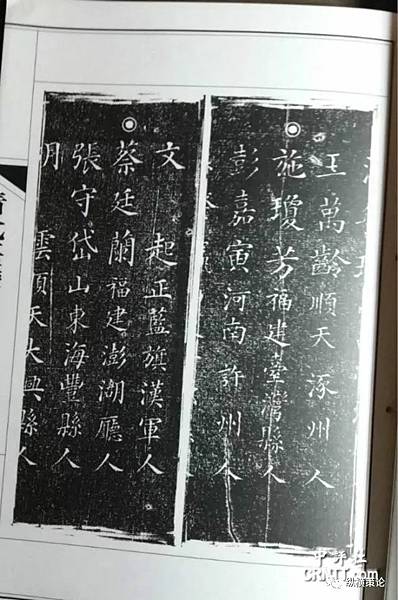 王萬齡順天涿州人
施瓊芳福建臺灣縣人
彭嘉寅河南許州人
文 起正藍旗漢軍人
蔡廷蘭福建澎湖廳人
張守岱山東海豐縣人
明 雲順天大興縣人
中评社
CRNTT.com
纵横策论